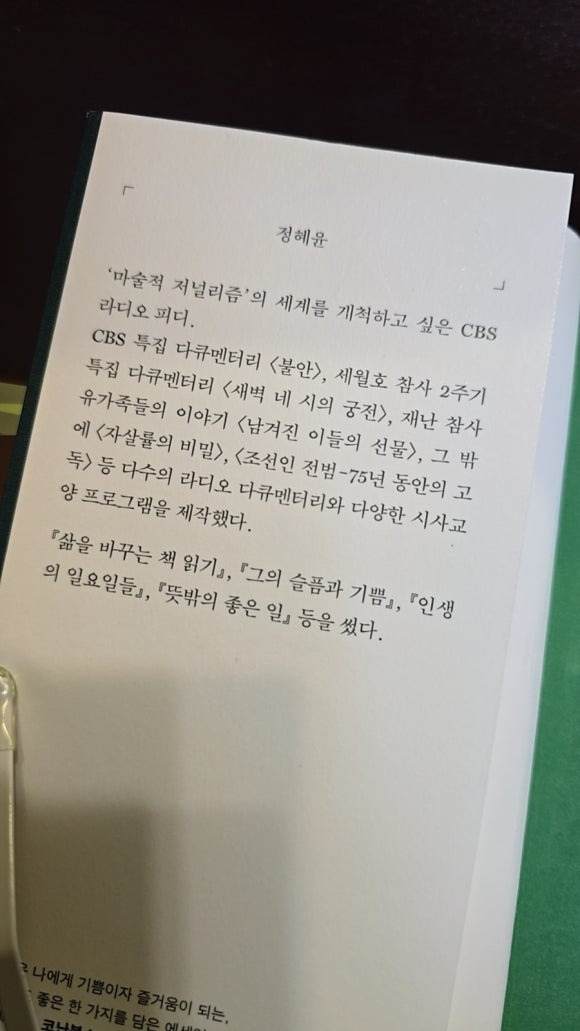 정혜윤
‘마술적 저널리즘’의 세계를 개척하고 싶은 CBS
라디오 피디.
CBS 특집 다큐멘터리 〈불안〉, 세월호 참사 2주기
특집 다큐멘터리 〈새벽 네 시의 궁전〉, 재난 참사
유가족들의 이야기 〈남겨진 이들의 선물〉, 그 밖
에 〈자살률의 비밀〉, 〈조선인 전범-75년 동안의 고
독〉 등 다수의 라디오 다큐멘터리와 다양한 시사교
양 프로그램을 제작했다.
『삶을 바꾸는 책 읽기』, 『그의 슬픔과 기쁨』, 『인생
의 일요일들』, 『뜻밖의 좋은 일』 등을 썼다.
나에게 기쁨이자 즐거움이 되는,
좋은 한 가지를 담은